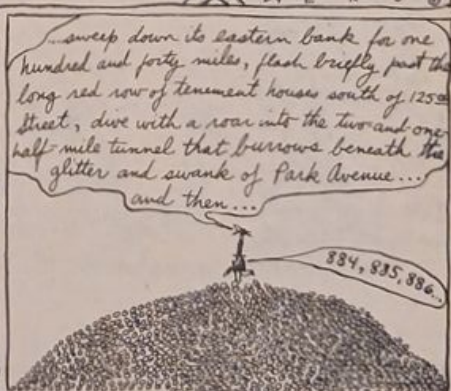 ...sweep down its eastern bank for one
hundred and forty miles, flash briefly past the
long red row of tenement houses south of 125th
Street, dive with a roar into the two-and-one
half-mile tunnel that burrows beneath the
glitter and swank of Park Avenue...
and then...
884, 885, 886...